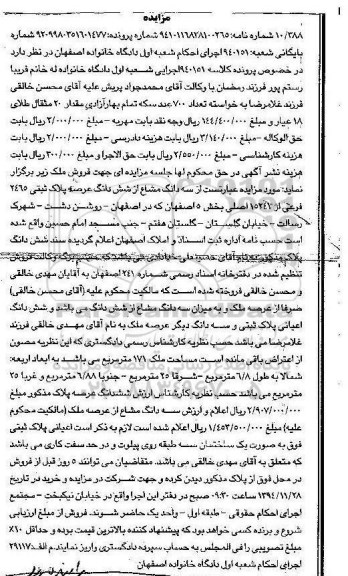 مزایده
۱۰/۳۸۸ شماره نامه: ۹۴۱۰۱۱۶۸۲۸۱۰۰۲۶۵ شماره پرونده: ۹۲۰۹۹۸۰۳۵۱۶۰۱۴۷۷ شماره
بایگانی شعبه: ۹۴۰۱۵۱ اجرای احکام شعبه اول دادگاه خانواده اصفهان در نظر دارد
در خصوص پرونده کلاسه ۹۴۰۱۵۱ اجرایی شعبه اول دادگاه خانواده له خانم فریبا
رستم پور فرزند رمضان با وکالت آقای محمدجواد پریش علیه آقای محسن خالقی
فرزند غلامرضا به خواسته تعداد ۷۰۰ عدد سکه تمام بهار آزادی مقدار ۲۰ مثقال طلای
۱۸ عیار و مبلغ ۱۴۴/۴۰۰/۰۰۰ ریال وجه نقد بابت مهریه - مبلغ ۲/۰۰۰/۰۰۰ ریال بابت
حق الوکاله - مبلغ ۳/۱۴۰/۰۰۰ ریال بابت هزینه دادرسی - مبلغ ۲/۰۰۰/۰۰۰ ریال بابت
هزینه کارشناسی - مبلغ ۲/۵۵۰/۰۰۰ ریال بابت حق الاجرا و مبلغ ۳۰۰/۰۰۰ ریال بابت
هزینه نشر آگهی در حق محکوم لها جلسه مزایده ای جهت فروش ملک زیر برگزار
نماید: مورد مزایده عبارتست از سه دانگ مشاع از شش دانگ عرصه پلاک ثبتی ۲۴۶۵
فرعی از ۱۵۲۴۷ اصلی بخش ۵ اصفهان که در اصفهان - روشن دشت - شهرک
رسالت - خیابان گلستان - گلستان هفتم - جنب مسجد امام حسین واقع شده
است حسب نامه اداره ثبت اسناد و املاک اصفهان اعلام گردیده سند شش دانگ
پلاک مذکور بنام آقای حمید علی خبادادی می باشد که حسب برگه وکالت فروش
تنظیم شده در دفترخانه اسناد رسمی شماره ۲۴۱ اصفهان به آقایان مهدی خالقی
و محسن خالقی فروخته شده است که مالکیت محکوم علیه (آقای محسن خالقی)
صرفا از عرصه ملک و به میزان سه دانگ مشاع از شش دانگ می باشد و شش دانگ
اعیانی پلاک ثبتی و سه دانگ دیگر عرصه ملک به نام آقای مهدی خالقی فرزند
غلامرضا می باشد حسب نظریه کارشناس رسمی دادگستری که این نظریه مصون
از اعتراض باقی مانده است مساحت ملک ۱۷۱ مترمربع می باشد به ابعاد اربعه:
شمالا به طول ۶/۸ مترمربع - شرقا ۲۵ مترمربع - جنوبا ۶/۸۸ مترمربع و غربا ۲۵
مترمربع می باشد حسب نظریه کارشناس ارزش ششدانگ عرصه پلاک مذکور مبلغ
۲/۹۰۷/۰۰۰/۰۰۰ ریال اعلام و ارزش سه دانگ مشاع از عرصه ملک (مالکیت محکوم
علیه) مبلغ ۱/۴۵۳/۵۰۰/۰۰۰ ریال اعلام شده است لازم به ذکر است اعیانی پلاک ثبتی
فوق به صورت یک ساختمان سه طبقه روی پیلوت و در حد سفت کاری می باشد
که متعلق به آقای مهدی خالقی می باشد. متقاضیان می توانند ۵ روز قبل از فروش
در محل فوق از پلاک مذکور دیدن کرده و جهت شرکت در مزایده و خرید در تاریخ
۱۳۹۴/۱۱/۲۸ ساعت ۹:۳۰ صبح در دفتر این اجرا واقع در خیابان نیکبخت - مجتمع
اجرای احکام حقوقی - طبقه اول - واحد یک حاضر شوند. فروش از مبلغ ارزیابی
شروع و برنده کسی خواهد بود که پیشنهاد کننده بالاترین قیمت بوده و حداقل ۱۰٪
مبلغ تصویبی را فی المجلس به حساب سپرده دادگستری واریز نمایند. م الف: ۲۹۱۱۷
اجرای احکام شعبه اول دادگاه خانواده اصفهان